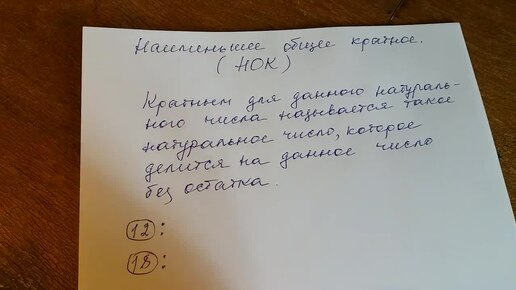 Наименьшее общее кратное.
(НОК)
Кратным для данного натураль-
ного числа называется такое
натуральное число, которое
делится на данное число
без остатка.
12:
18: